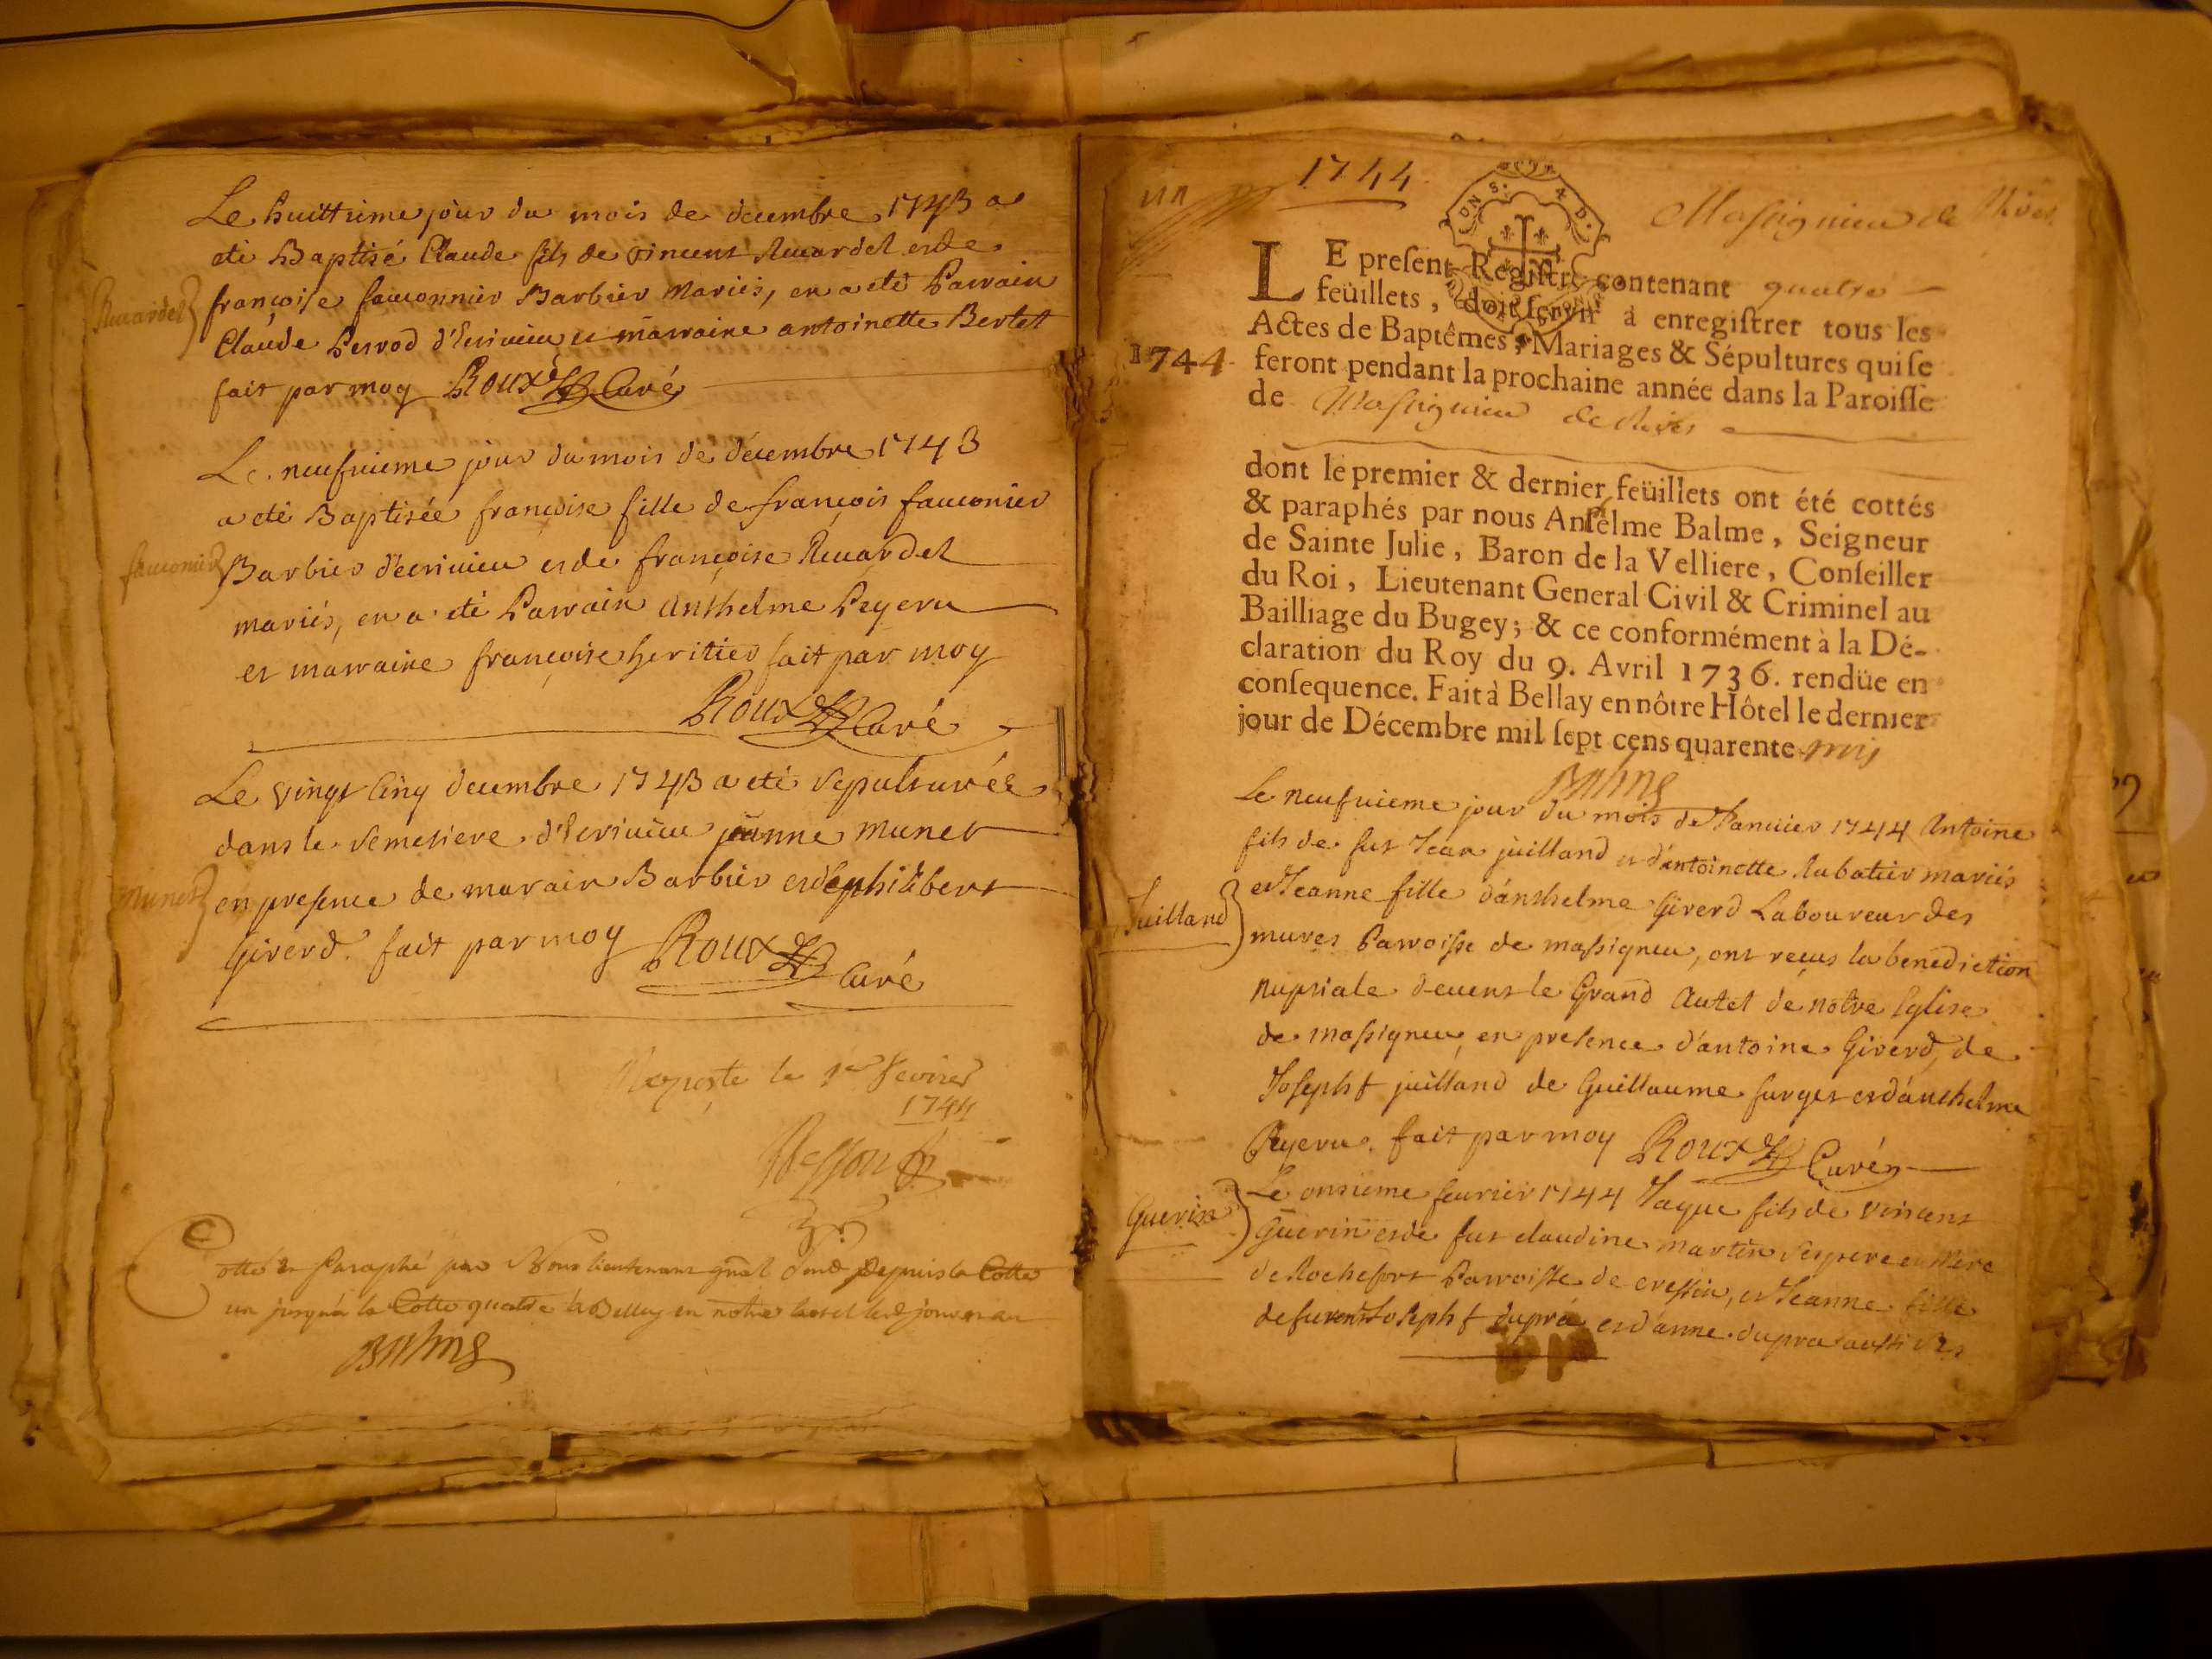 Le huittieme jour du mois de decembre 1743 a
eté Baptisé Claude fils de vincent Ruardel et de
Ruardel
françoise fauconnier Barbier Mariés, en a eté Parrain
Claude Perrod d'Ecrivieu et marraine antoinette Bertet
fait par moy Roux Curé
Le neufvieme jour du mois de décembre 1743
a eté Baptisée françoise fille de françois fauconier
fauconier
Barbier d'ecrivieu et de françoise Ruardel
mariés, en a eté Parrain Anthelme Peyeru
et marraine françoise heritier fait par moy
Roux Curé
Le vingt Cinq decembre 1743 a eté Sepulturée
dans le Semetiere d'Ecrivieu jeanne Munet
Munet
en presence de marain Barbier et de philibert
Girerd. fait par moy Roux
Curé
le 1er Fevrier
1744
Cotté et Paraphé par Nous lieutenant gnal Depuis la Cotte
un jusqu'a la Cotte quatre à Belley en notre hotel
Balme
un
1744
Massignieu de Rives
LE preſent Regiſtre contenant quatre
feüillets, doit ſervir à enregiſtrer tous les
Actes de Baptêmes, Mariages & Sépultures qui ſe
1744
feront pendant la prochaine année dans la Paroiſſe
de Massignieu de Rives
dont le premier & dernier feüillets ont été cottés
& paraphés par nous Anſelme Balme, Seigneur
de Sainte Julie, Baron de la Velliere, Conſeiller
du Roi, Lieutenant General Civil & Criminel au
Bailliage du Bugey; & ce conformément à la Dé-
claration du Roy du 9. Avril 1736. rendüe en
conſequence. Fait à Bellay en nôtre Hôtel le dernier
jour de Décembre mil ſept cens quarente trois
Balme
Le neufvieme jour du mois de Janvier 1744 Antoine
fils de fut Jean juilland et d'antoinette Rubatier mariés
et Jeanne fille d'anthelme Girerd Laboureur des
Juilland
mures Parroisse de massigneu, ont reçus la benediction
nuptiale devent le Grand Autel de notre Eglise
de massigneu, en presence d'antoine Girerd, de
Joseph f juilland de Guillaume furget et d'anthelme
Peyeru. fait par moy Roux Curé
Le onsieme fevrier 1744 Jaque fils de vincent
Guerin
Guerin et de fut claudine martin ses pere et Mere
de Rochefort Parroisse de cressin, et Jeanne fille
Joseph f dupra et d'anne dupra aussi